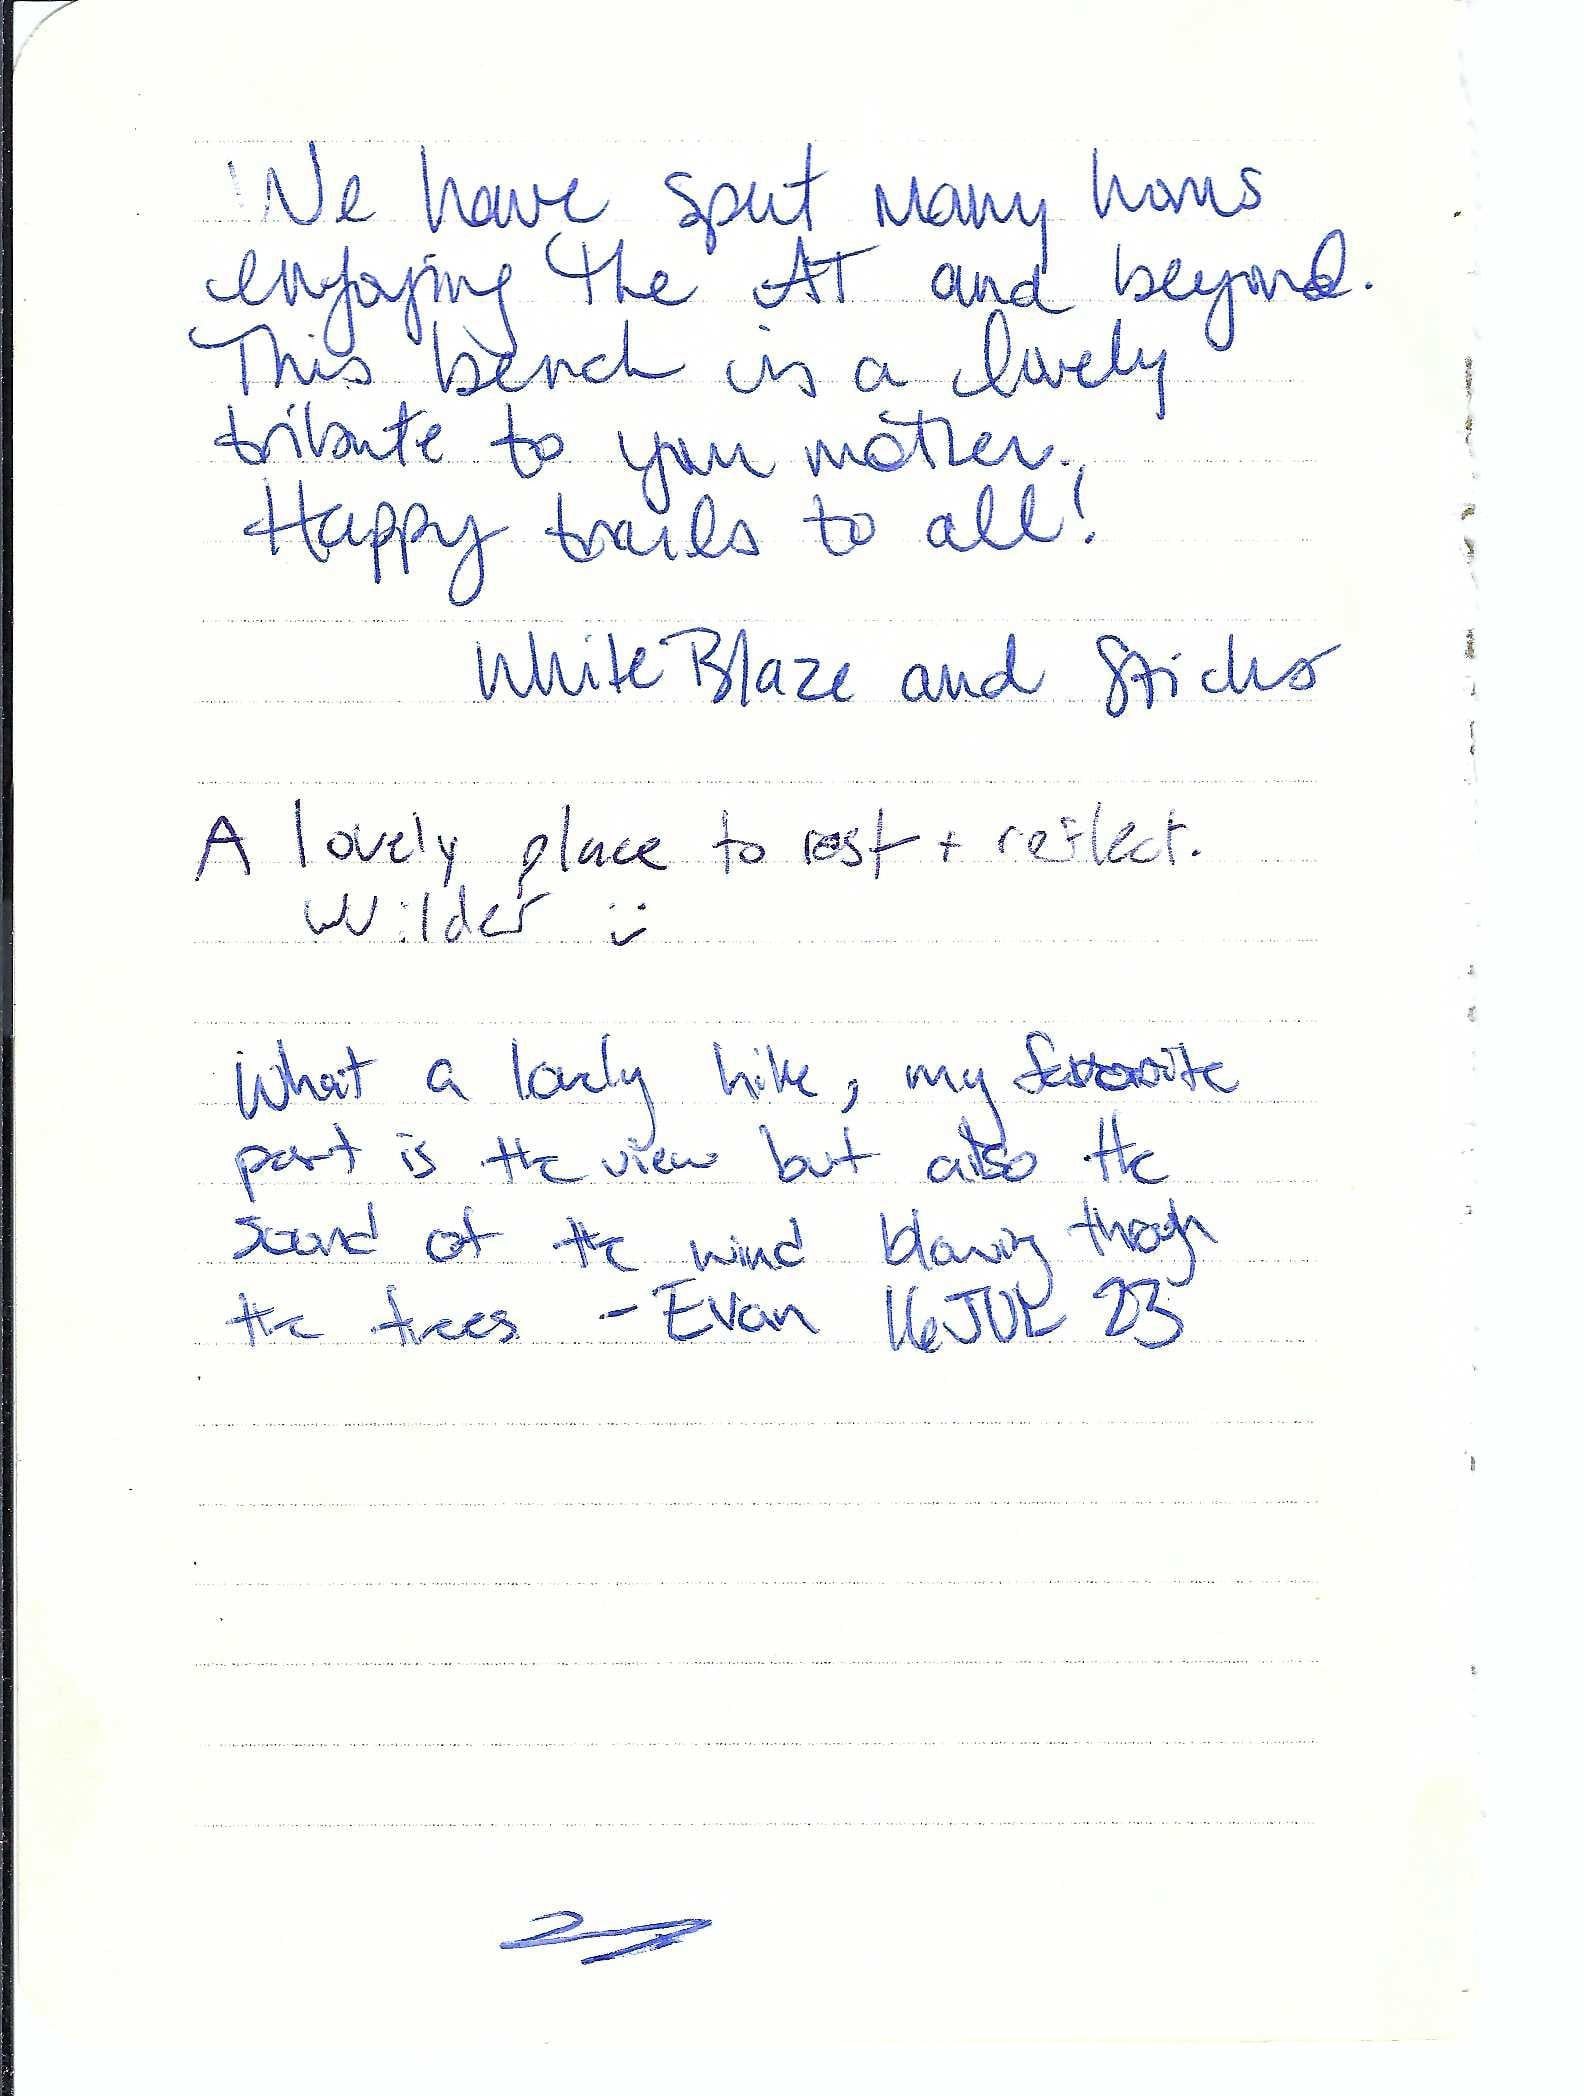 We have spent many hours
enjoying the AT and beyond.
This bench is a lovely
tribute to your mother.
Happy trails to all!
White Blaze and Sticks
A lovely place to rest + reflect.
Wilder :)
What a lovely hike, my favorite
part is the view but also the
sound of the wind blowing through
the trees - Evan 16 JUL 23